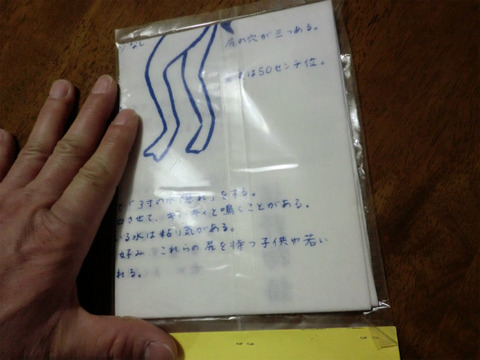 なし
尻の穴が三つある。
は50センチ位。
をする。
させて、キーキーと鳴くことがある。
いる水は粘り気がある。
好み これらの尻を持つ子供や若い
れる。